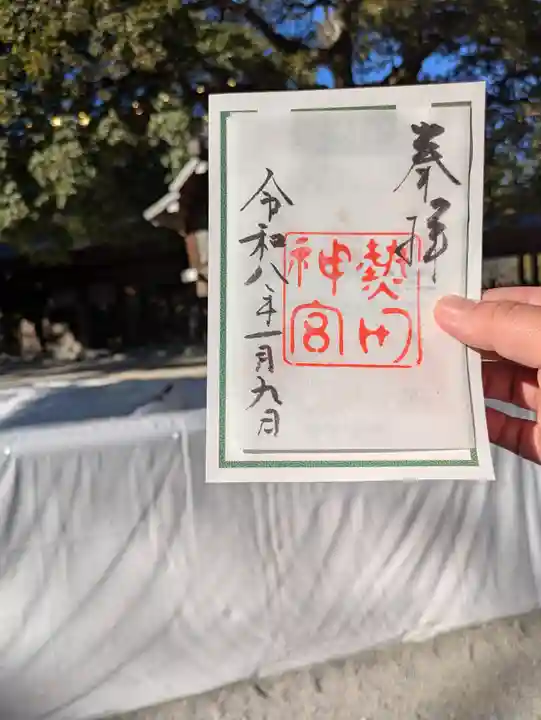 奉拝
熱田
神宮
令和八年一月九日